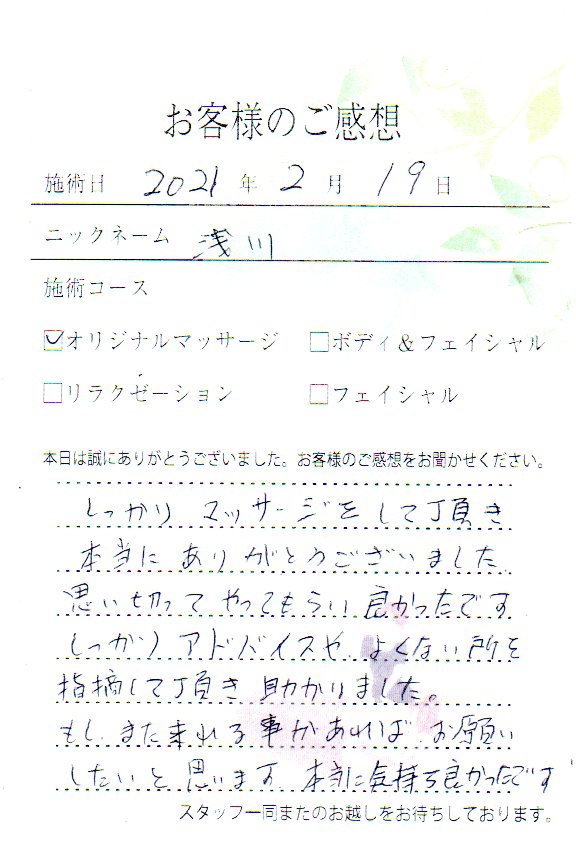 お客様のご感想
施術日 2021 年 2 月 19 日
ニックネーム 浅川
施術コース
☑オリジナルマッサージ □ボディ&フェイシャル
□リラクゼーション □フェイシャル
本日は誠にありがとうございました。お客様のご感想をお聞かせください。
しっかり マッサージをして頂き
本当に ありがとうございました
思い切って やってもらい 良かったです
しっかり アドバイスや よくない所を
指摘して頂き 助かりました。
もし また来れる事があれば お願い
したいと思います 本当に気持ち良かったです
スタッフ一同またのお越しをお待ちしております。